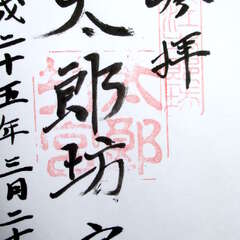 参拝
太郎坊宮
成二十五年三月二十